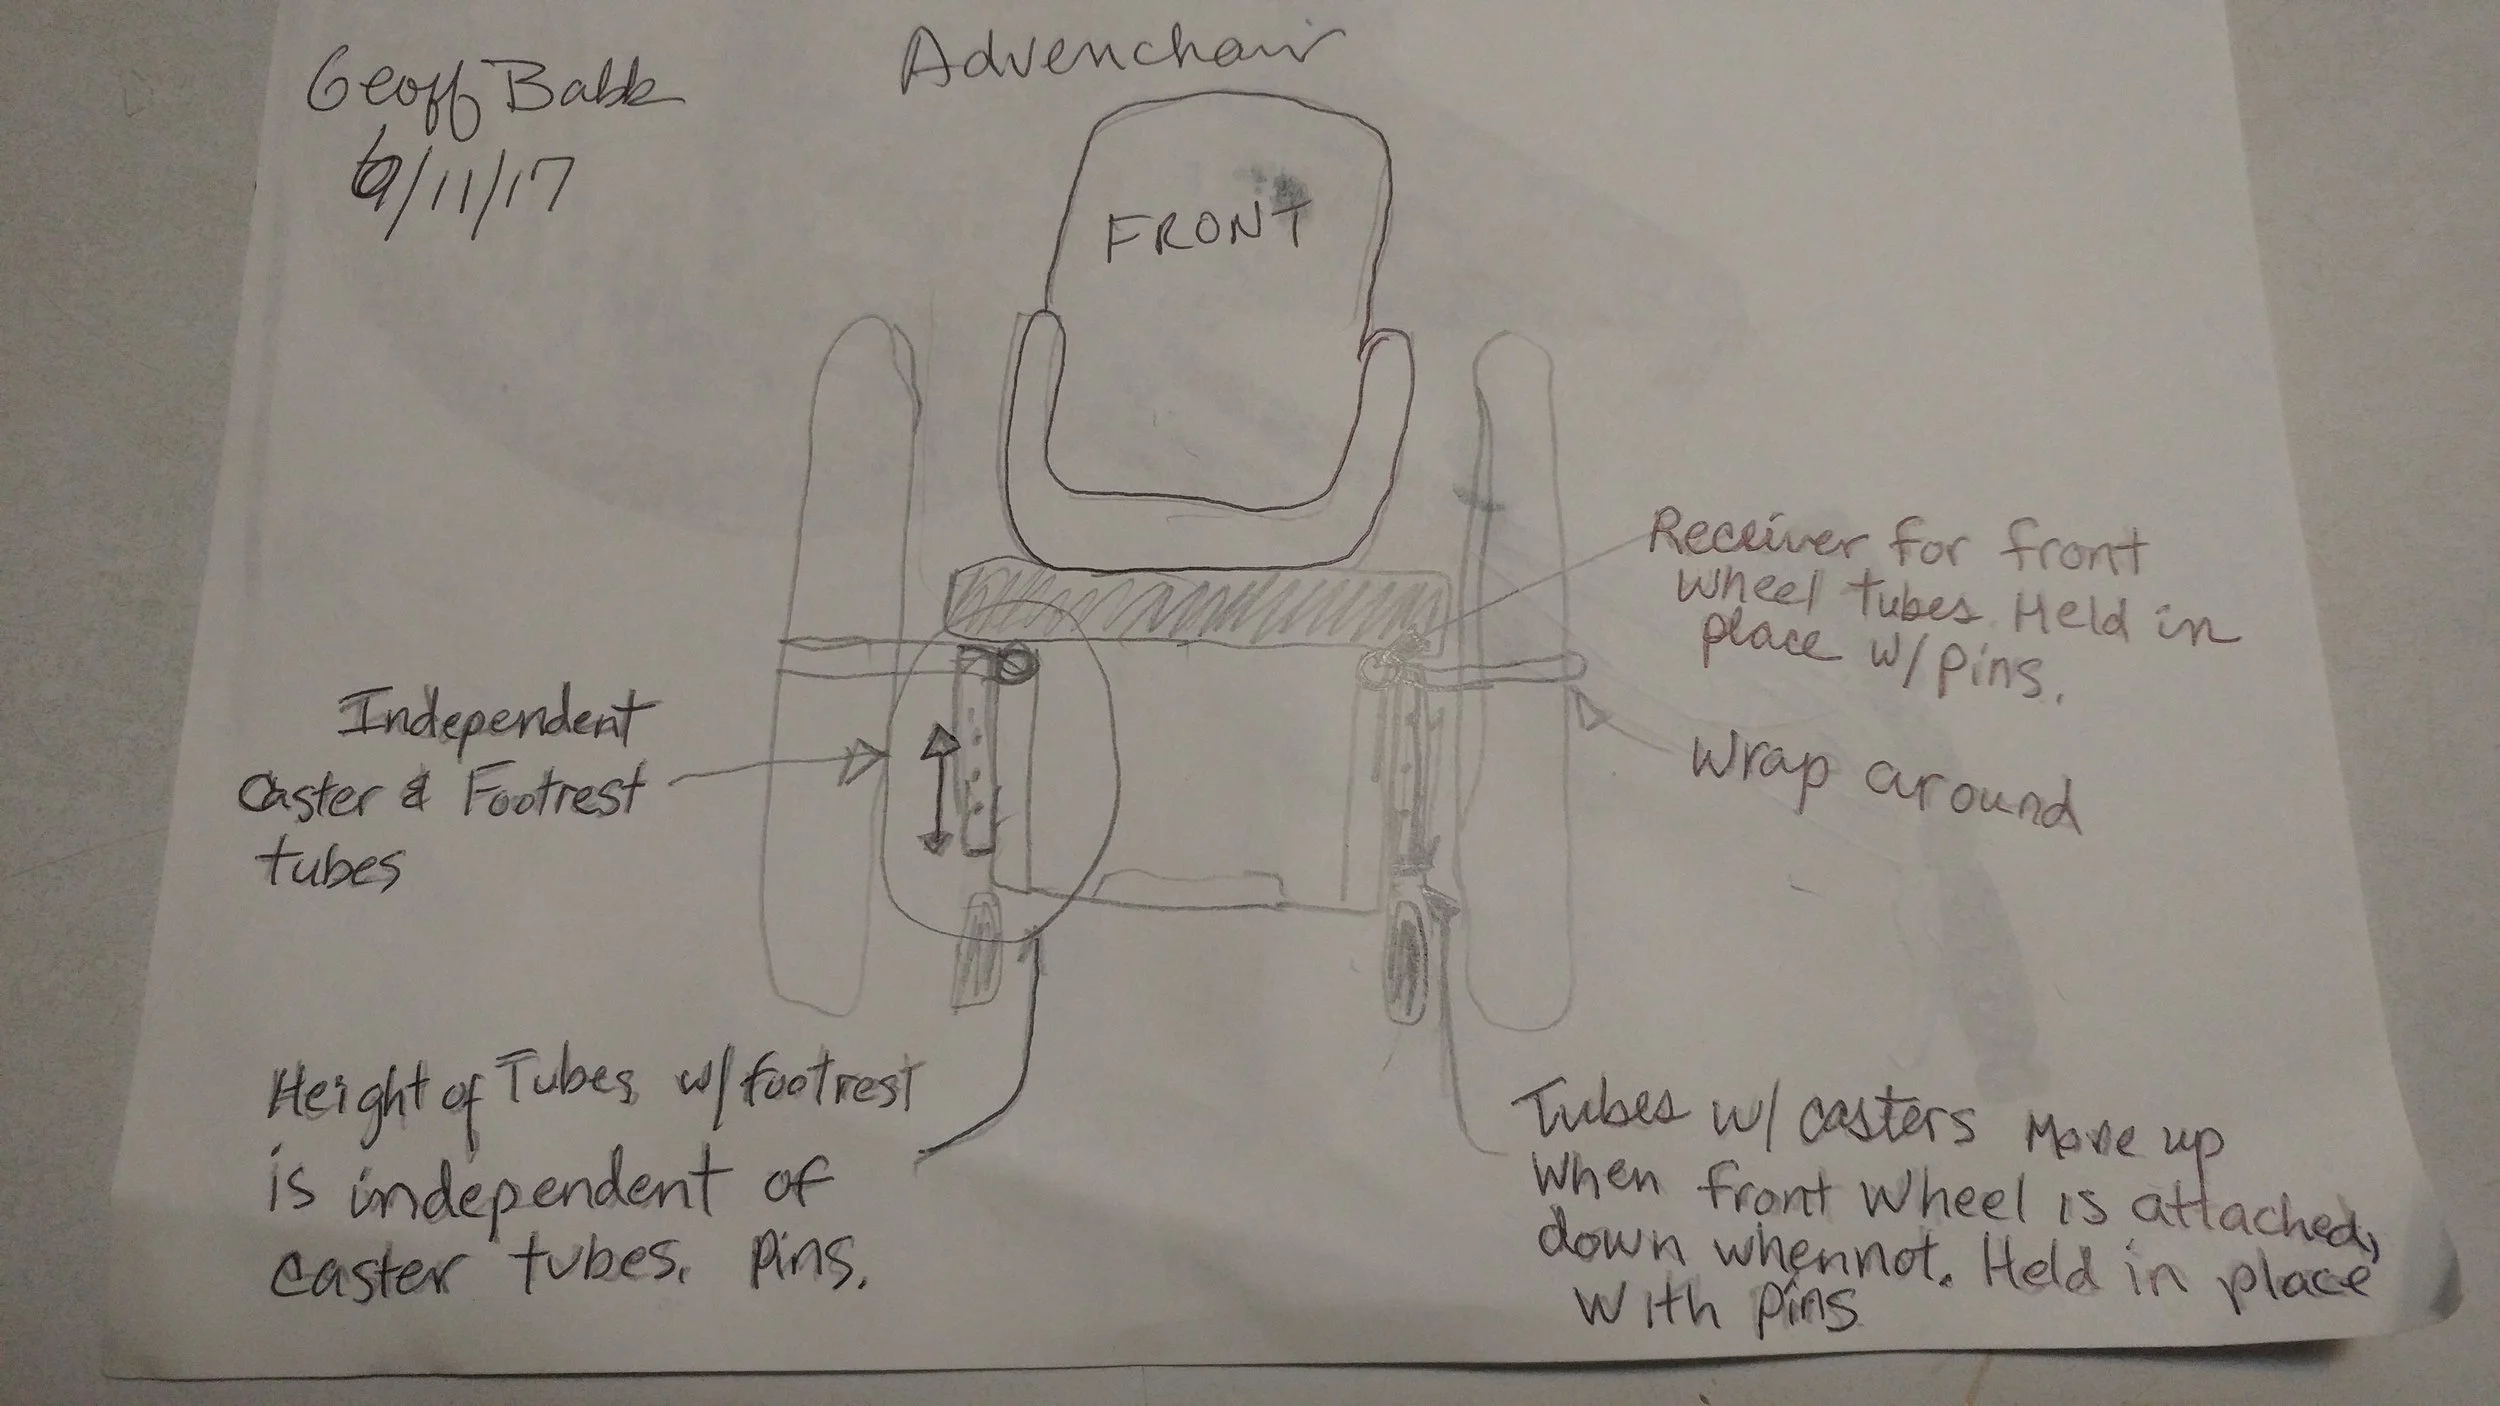 Advenchair
Geoff Babb
6/11/17
FRONT
Receiver for front
wheel tubes. Held in
place w/pins.
Wrap around
Independent
Caster & Footrest
tubes
Height of Tubes w/footrest
is independent of
caster tubes. Pins.
Tubes w/ casters Move up
When front wheel is attached,
down when not. Held in place
with pins